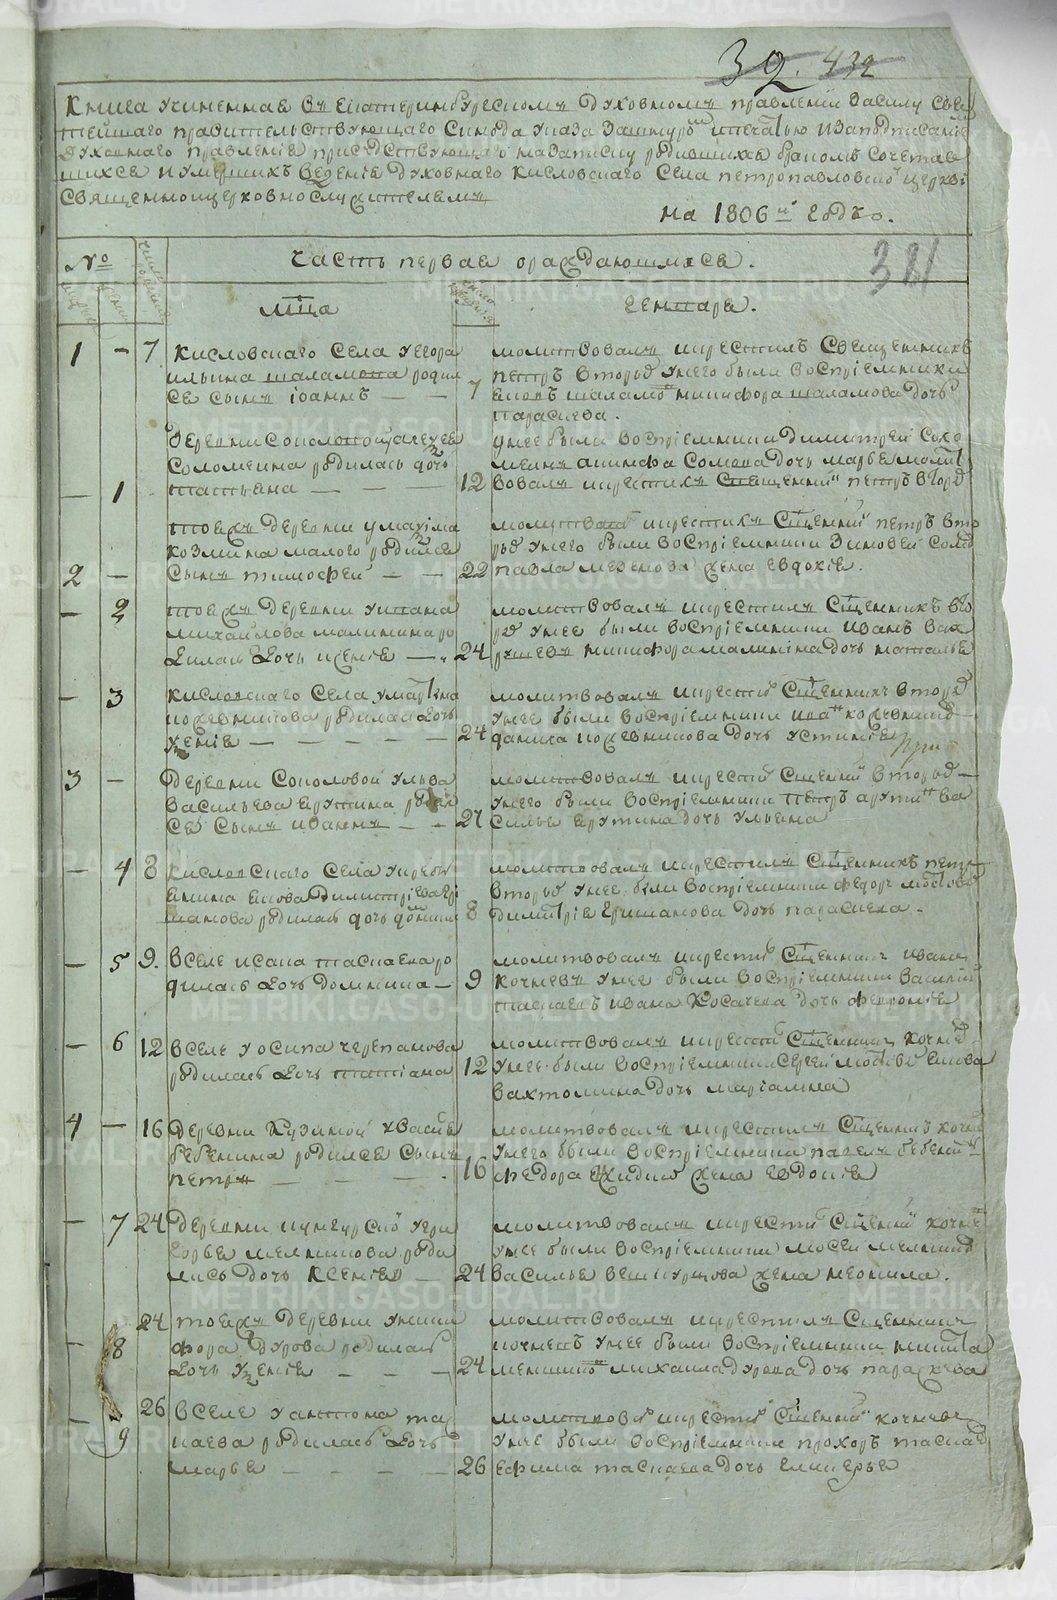 32. 432
Книга учиненная въ Екатеринбургскомъ Духовномъ правлении Засилу Свя
тейшаго правительствующаго Синода указа Зашнуромъ ипечатью изаподписаниемъ
Духовнаго правления присудствующаго назаписку родившихся бракомъ сочетав
шихся иумершихъ Ведения Духовнаго Кисловскаго Села петропавловской церкви
Священноицерковнослужителямъ
на 1806й годъ.
№
Часть первая ораждающихся.
381
Мца
Генваря.
1 – 7 Кисловскаго Села уегора
ильина шаламова родил
ся сынъ Iоаннъ 7
молитвовалъ икрестилъ Священникъ
петръ второй унего были воспрiемники
никифора шаламова дочь
параскева.
– 1 Деревни Соколовой уалексея
Соломеина родилась дочь
татьяна 12
унее были воспрiемники димитрей Соко
дочь марья молит
вовалъ икрестилъ Священникъ петръ второй
2 – тоежъ деревни умаѯима
козмина малого родился
Сынъ тимофей 22
молитвовалъ икрестилъ Сщенникъ петръ вто
рый унего были воспрiемники Зиновей
павла мезенова жена евдокiя.
– 2 тоежъ деревни
михайлова малинина ро
дилась дочь ксенiя 24
молитвовалъ икрестилъ Сщенникъ вто
рой унее были воспрiемники иванъ вах
рушевъ никифора малинина дочь наталья
– 3 кисловскаго Села умартына
кожевникова родилась дочь
ѯенiя 24
молитвовалъ икрестилъ Сщенникъ второй
унее были воспрiемники иванъ кожевников
данила кожевникова дочь устинiя
3 – деревни Соколовой ульва
Васильева ярутина родил
ся Сынъ иваннъ 27
молитвовалъ икрестилъ Сщенникъ второй
унего были воспрiемники петръ арутинъ ва
силья ярутина дочь ульяна
– 4 8 кисловскаго Села
димитрiева
родилась дочь 8
молитвовалъ икрестилъ Сщенникъ петръ
второй унее были воспрiемники федоръ
димитрiя еришанова дочь параскева.
– 5 9. вселе исака таскаева ро
дилась дочь домника 9
молитвовалъ икрестилъ Сщенникъ иванъ
кочневъ унее были воспрiемники василiй
таскаевъ ивана Косачева дочь феврониiя
– 6 12 вселе уосипа черепанова
родилась дочь татiана 12
молитвовалъ икрестилъ Сщенникъ кочнев
унее были воспрiемники Сергей якова
вахтомина дочь марiамна
4 – 16 деревни
бебенина родился Сынъ
петръ 16
молитвовалъ икрестилъ Сщенникъ кочнев
унего были воспрiемники павелъ бебенинъ
федора жена евдокiя
– 7 24 деревни кунгурской угри
горья мелникова роди
лась дочь ксенiя 24
молитвовалъ икрестилъ Сщенникъ кочнев
унее были воспрiемники мосей мелников
василья жена неонила.
– 8 24 тоежъ деревни уники
фора дурова родилась
дочь ѯенiя 24
молитвовалъ икрестилъ Сщенникъ
кочневъ унее были воспрiемники никита
михаила дурова дочь параскева
– 9 26 вселе уантона тас
каева родилась дочь
марья 26
молитвовалъ икрестилъ Сщенникъ кочневъ
унее были воспрiемники прохоръ таскаев
ефима таскаева дочь гликерья
METRIKI.GASO-URAL.RU